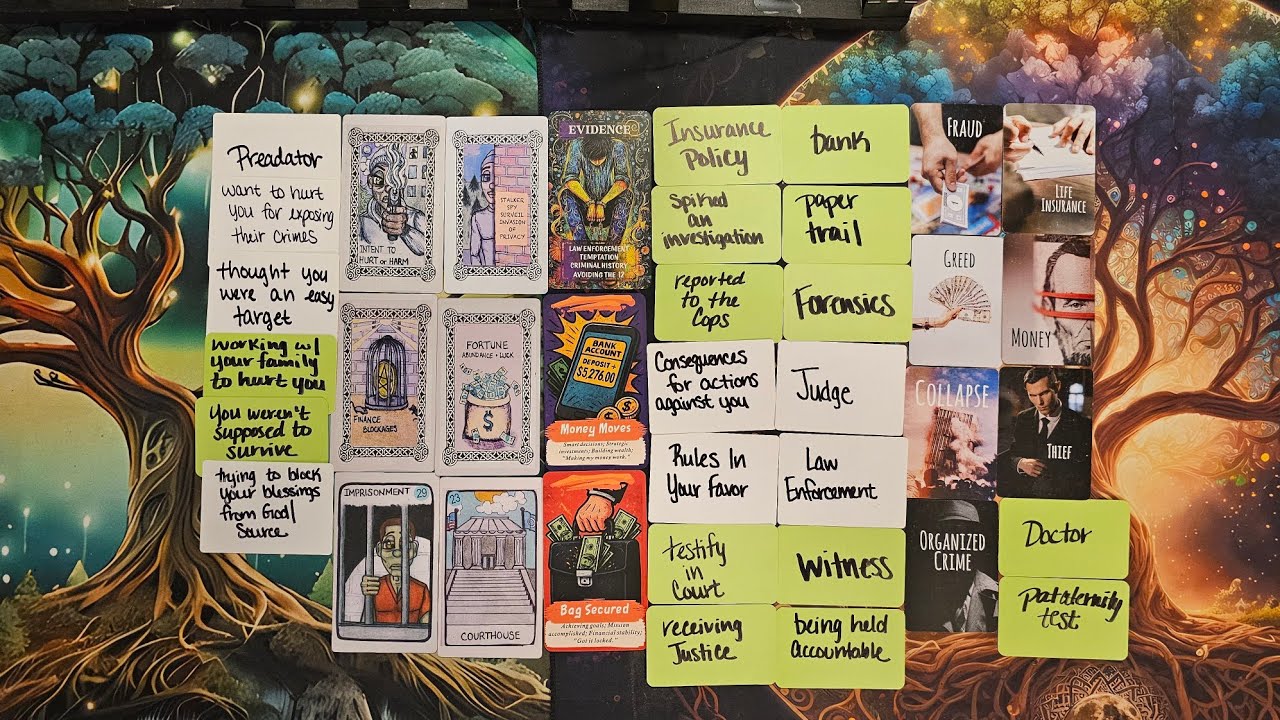 Preadator
want to hurt
you for exposing
their Crimes
thought you
were an easy
target
working w/
your family
to hurt you
You weren't
supposed to
survive
trying to block
your blessings
from God/
Source
INTENT TO
HURT or HARM
STALKER
SPY
SURVEIL
INVASION
OF
PRIVACY
FINANCE
BLOCKAGES
FORTUNE
ABUNDANCE + LUCK
$
IMPRISONMENT 29
23
COURTHOUSE
EVIDENCE
LAW ENFORCEMENT
TEMPTATION
CRIMINAL HISTORY
AVOIDING THE 12
BANK
ACCOUNT
DEPOSIT +
$5,276.00
Money Moves
Smart decisions; Strategic
investments; Building wealth;
"Making my money work."
Bag Secured
Achieving goals; Mission
accomplished; Financial stability;
"Got it locked."
Insurance
Policy
Spirked
an
investigation
reported
to the
Cops
Consequences
for actions
against you
Rules In
Your Favor
testify
in
Court
receiving
Justice
bank
paper
trail
Forensics
Judge
Law
Enforcement
Witness
being held
Accountable
FRAUD
LIFE
INSURANCE
GREED
MONEY
COLLAPSE
THIEF
ORGANIZED
CRIME
Doctor
patáternity
test